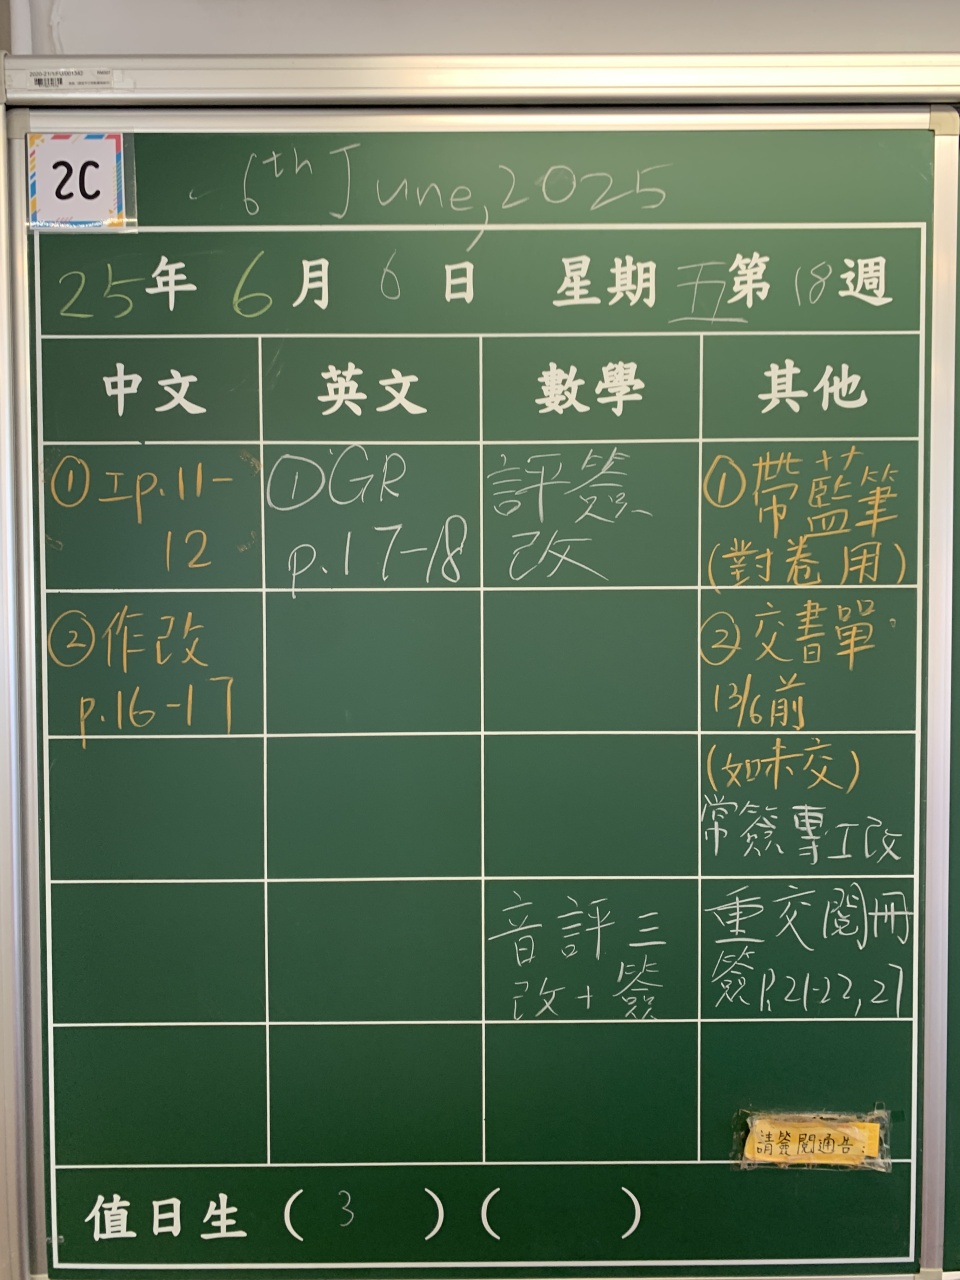 2C
6th June, 2025
25年 6月 6日 星期五 第18週
中文 英文 數學 其他
①工p.11-
12
①GR
p.17-18
評簽
改
①帶藍筆
(對卷用)
②作改
p.16-17
②交書單
13/6前
(如未交)
常簽專工改
音評三
改+簽
重交閱冊
簽p.21-22,27
請簽閱通告:
值日生 ( 3 ) ( )